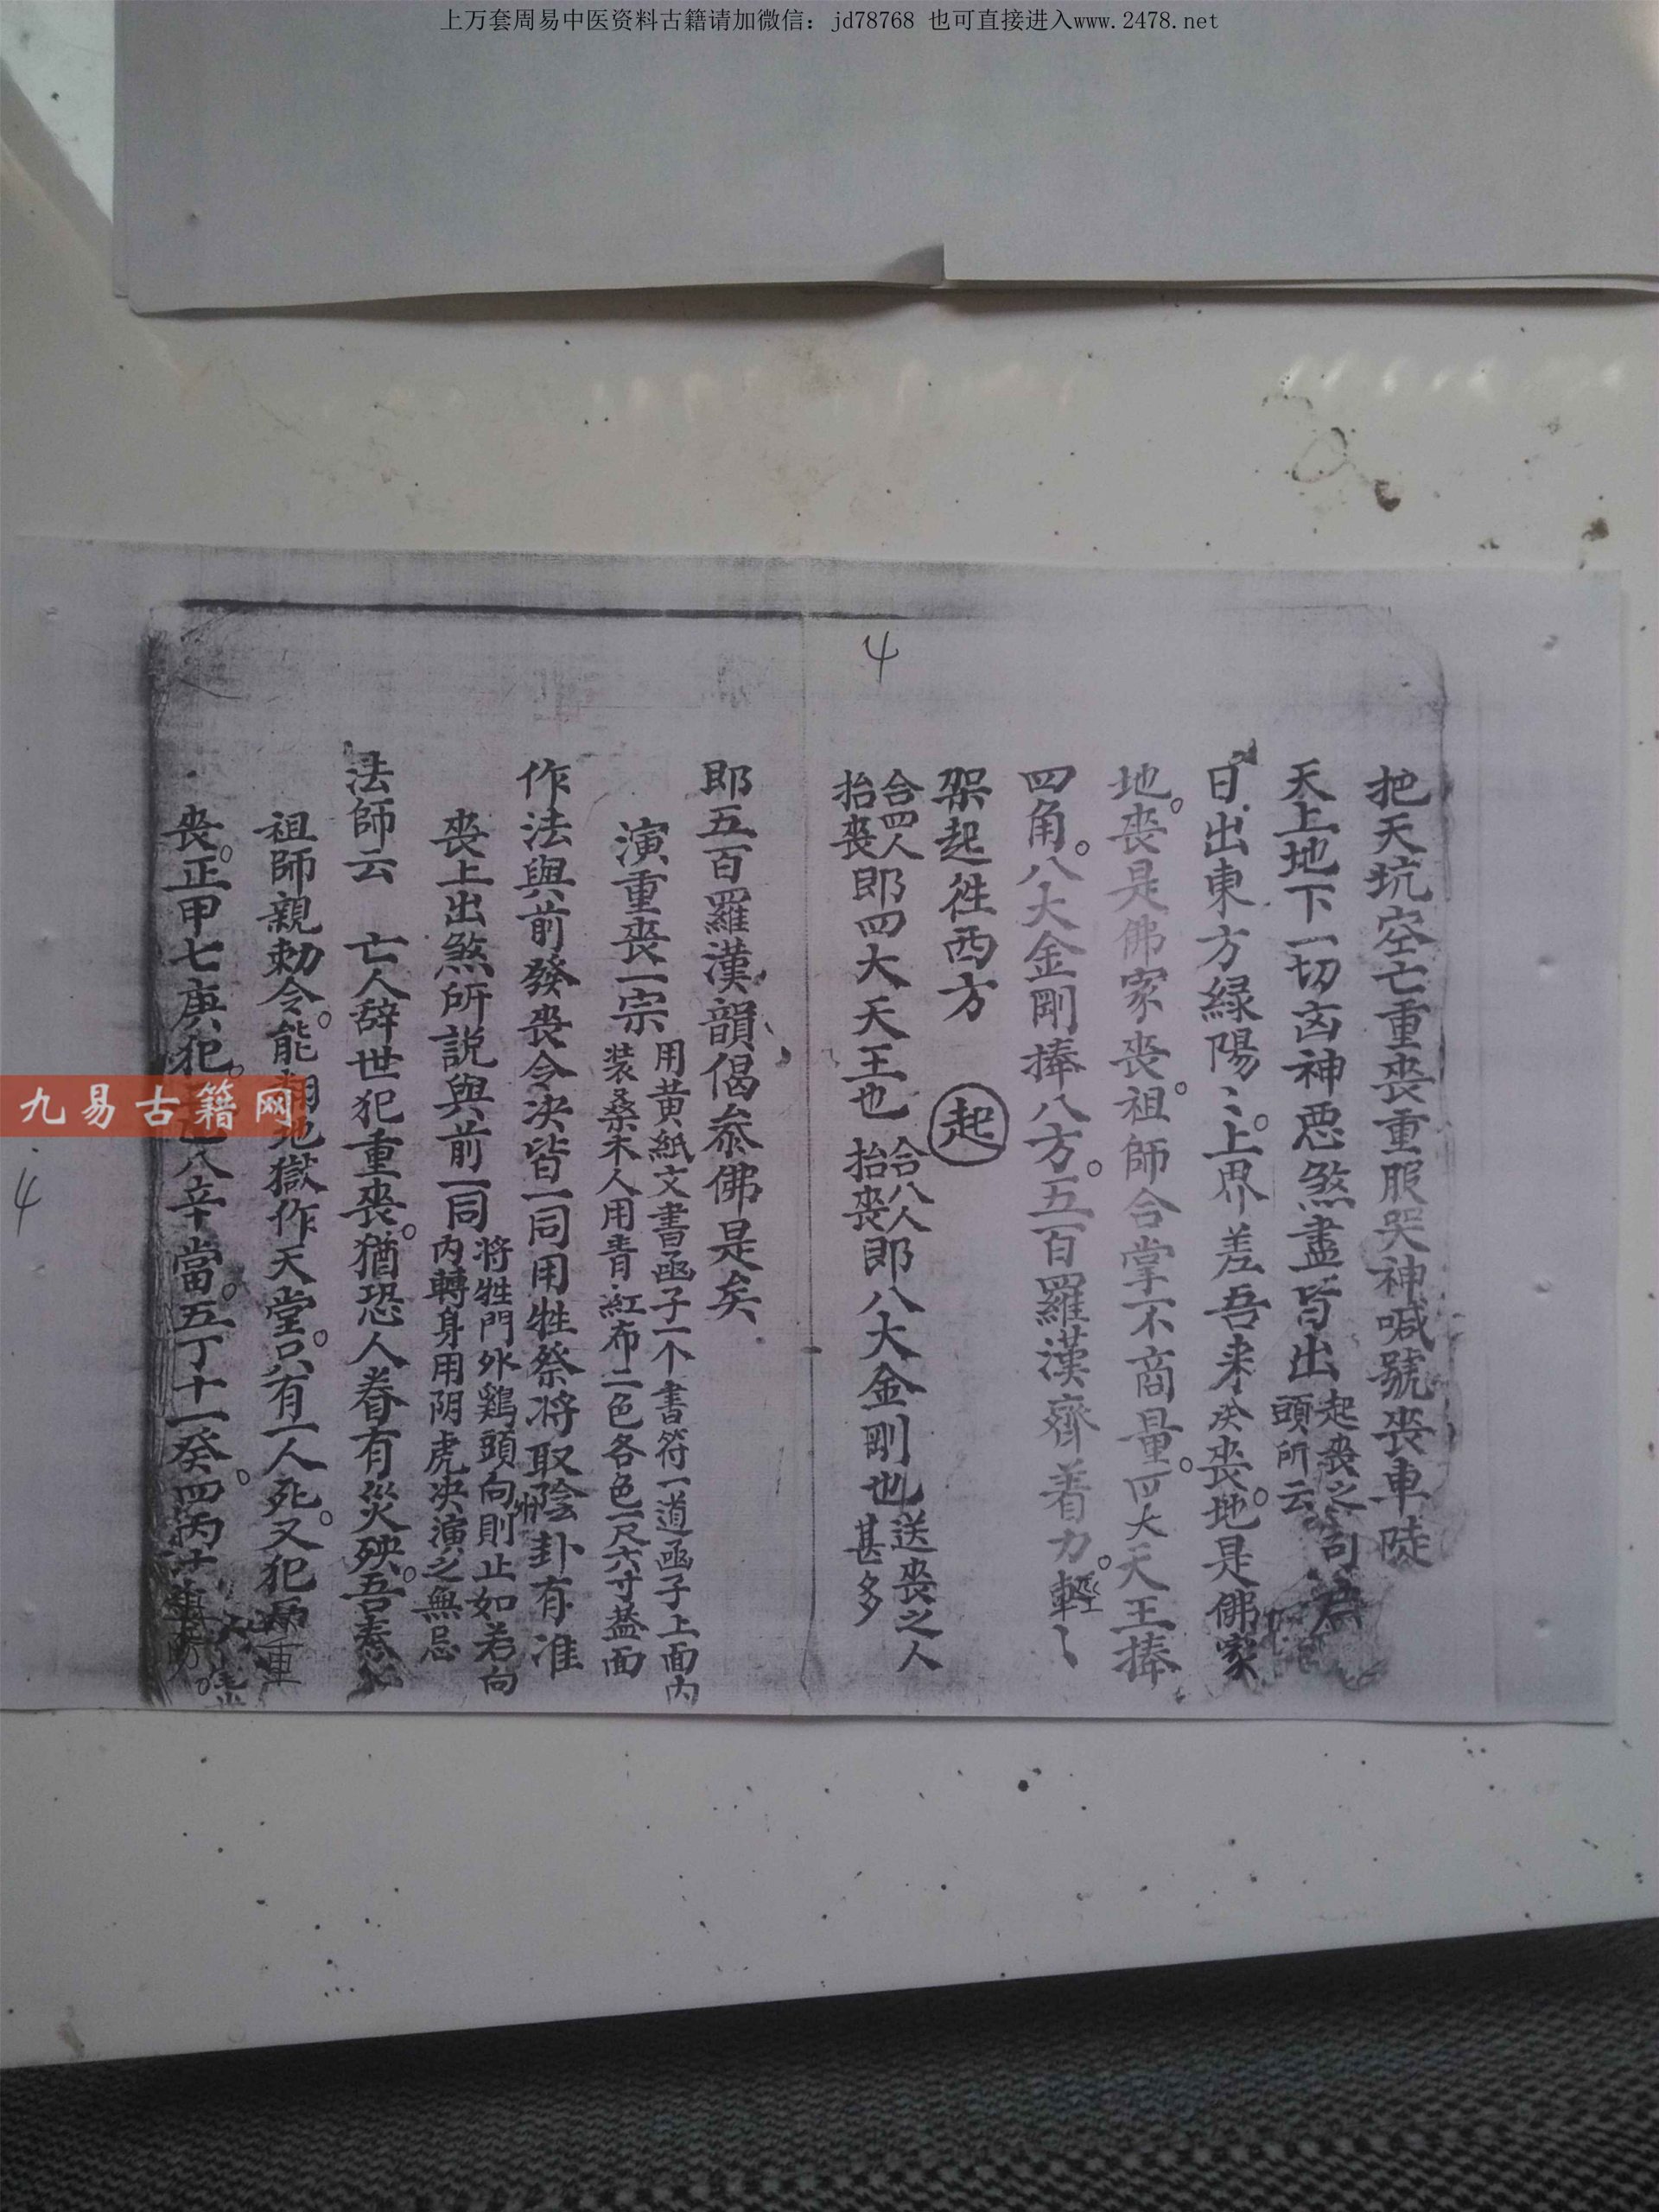 上万套周易中医资料古籍请加微信：jd78768 也可直接进入www.2478.net
4
把天坑空亡重喪重服哭神喊號喪車陡
天上地下一切凶神恶煞盡皆出
起喪之
頭所云
日出東方緑陽〻上界差吾来癸喪地是佛家
地喪是佛家喪祖師合掌不商量四大天王捧
四角八大金剛捧八方五百羅漢齊着力輕〻
架起徃西方 起
合四人
抬喪
即四大天王也
合八人
抬喪
即八大金剛也
送喪之人
甚多
即五百羅漢韻偈叅佛是矣
演重喪一宗
用黄紙文書函子一个書符一道函子上面内
装桑木人用青紅布二色各色一尺六寸盖面
作法與前發喪令决皆一同用牲祭将取陰卦有准
喪上出煞所説與前一同
将牲門外鷄頭向則止如若向
内轉身用阴虎决演之無忌
法師云 亡人辞世犯重喪猶恐人眷有災殃吾奉
祖師親勅令能 地獄作天堂只有一人死又犯 重
喪正甲七庚犯 八辛當五丁十一癸四丙
九易古籍网
4